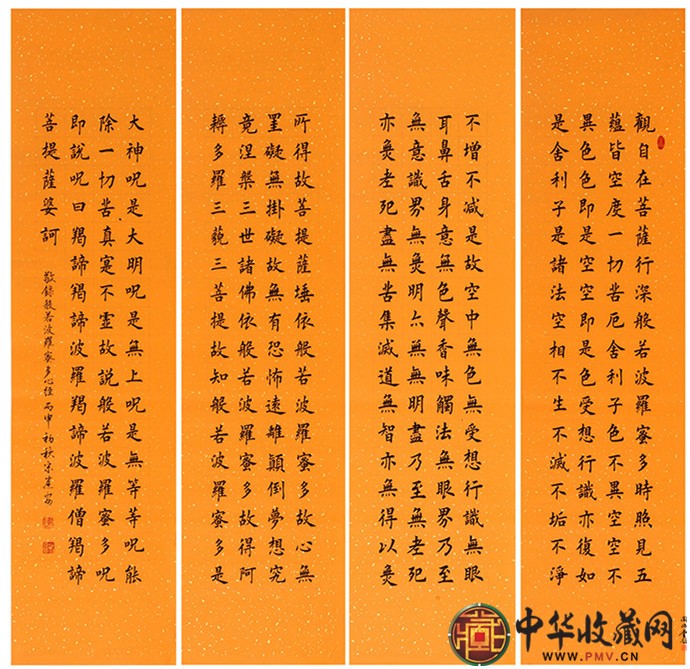 觀自在菩薩行深般若波羅蜜多時照見五
蘊皆空度一切苦厄舍利子色不異空空不
異色色即是空空即是色受想行識亦復如
是舍利子是諸法空相不生不滅不垢不淨
不增不減是故空中無色無受想行識無眼
耳鼻舌身意無色聲香味觸法無眼界乃至
無意識界無無明亦無無明盡乃至無老死
亦無老死盡無苦集滅道無智亦無得以無
所得故菩提薩埵依般若波羅蜜多故心無
罣礙無掛礙故無有恐怖遠離顛倒夢想究
竟涅槃三世諸佛依般若波羅蜜多故得阿
耨多羅三藐三菩提故知般若波羅蜜多是
大神呪是大明呪是無上呪是無等等呪能
除一切苦真寔不虛故說般若波羅蜜多呪
即說呪曰羯諦羯諦波羅羯諦波羅僧羯諦
菩提薩婆訶
敬錄般若波羅蜜多心經 丙申初秋
中华收藏网
WWW.PMV.CN